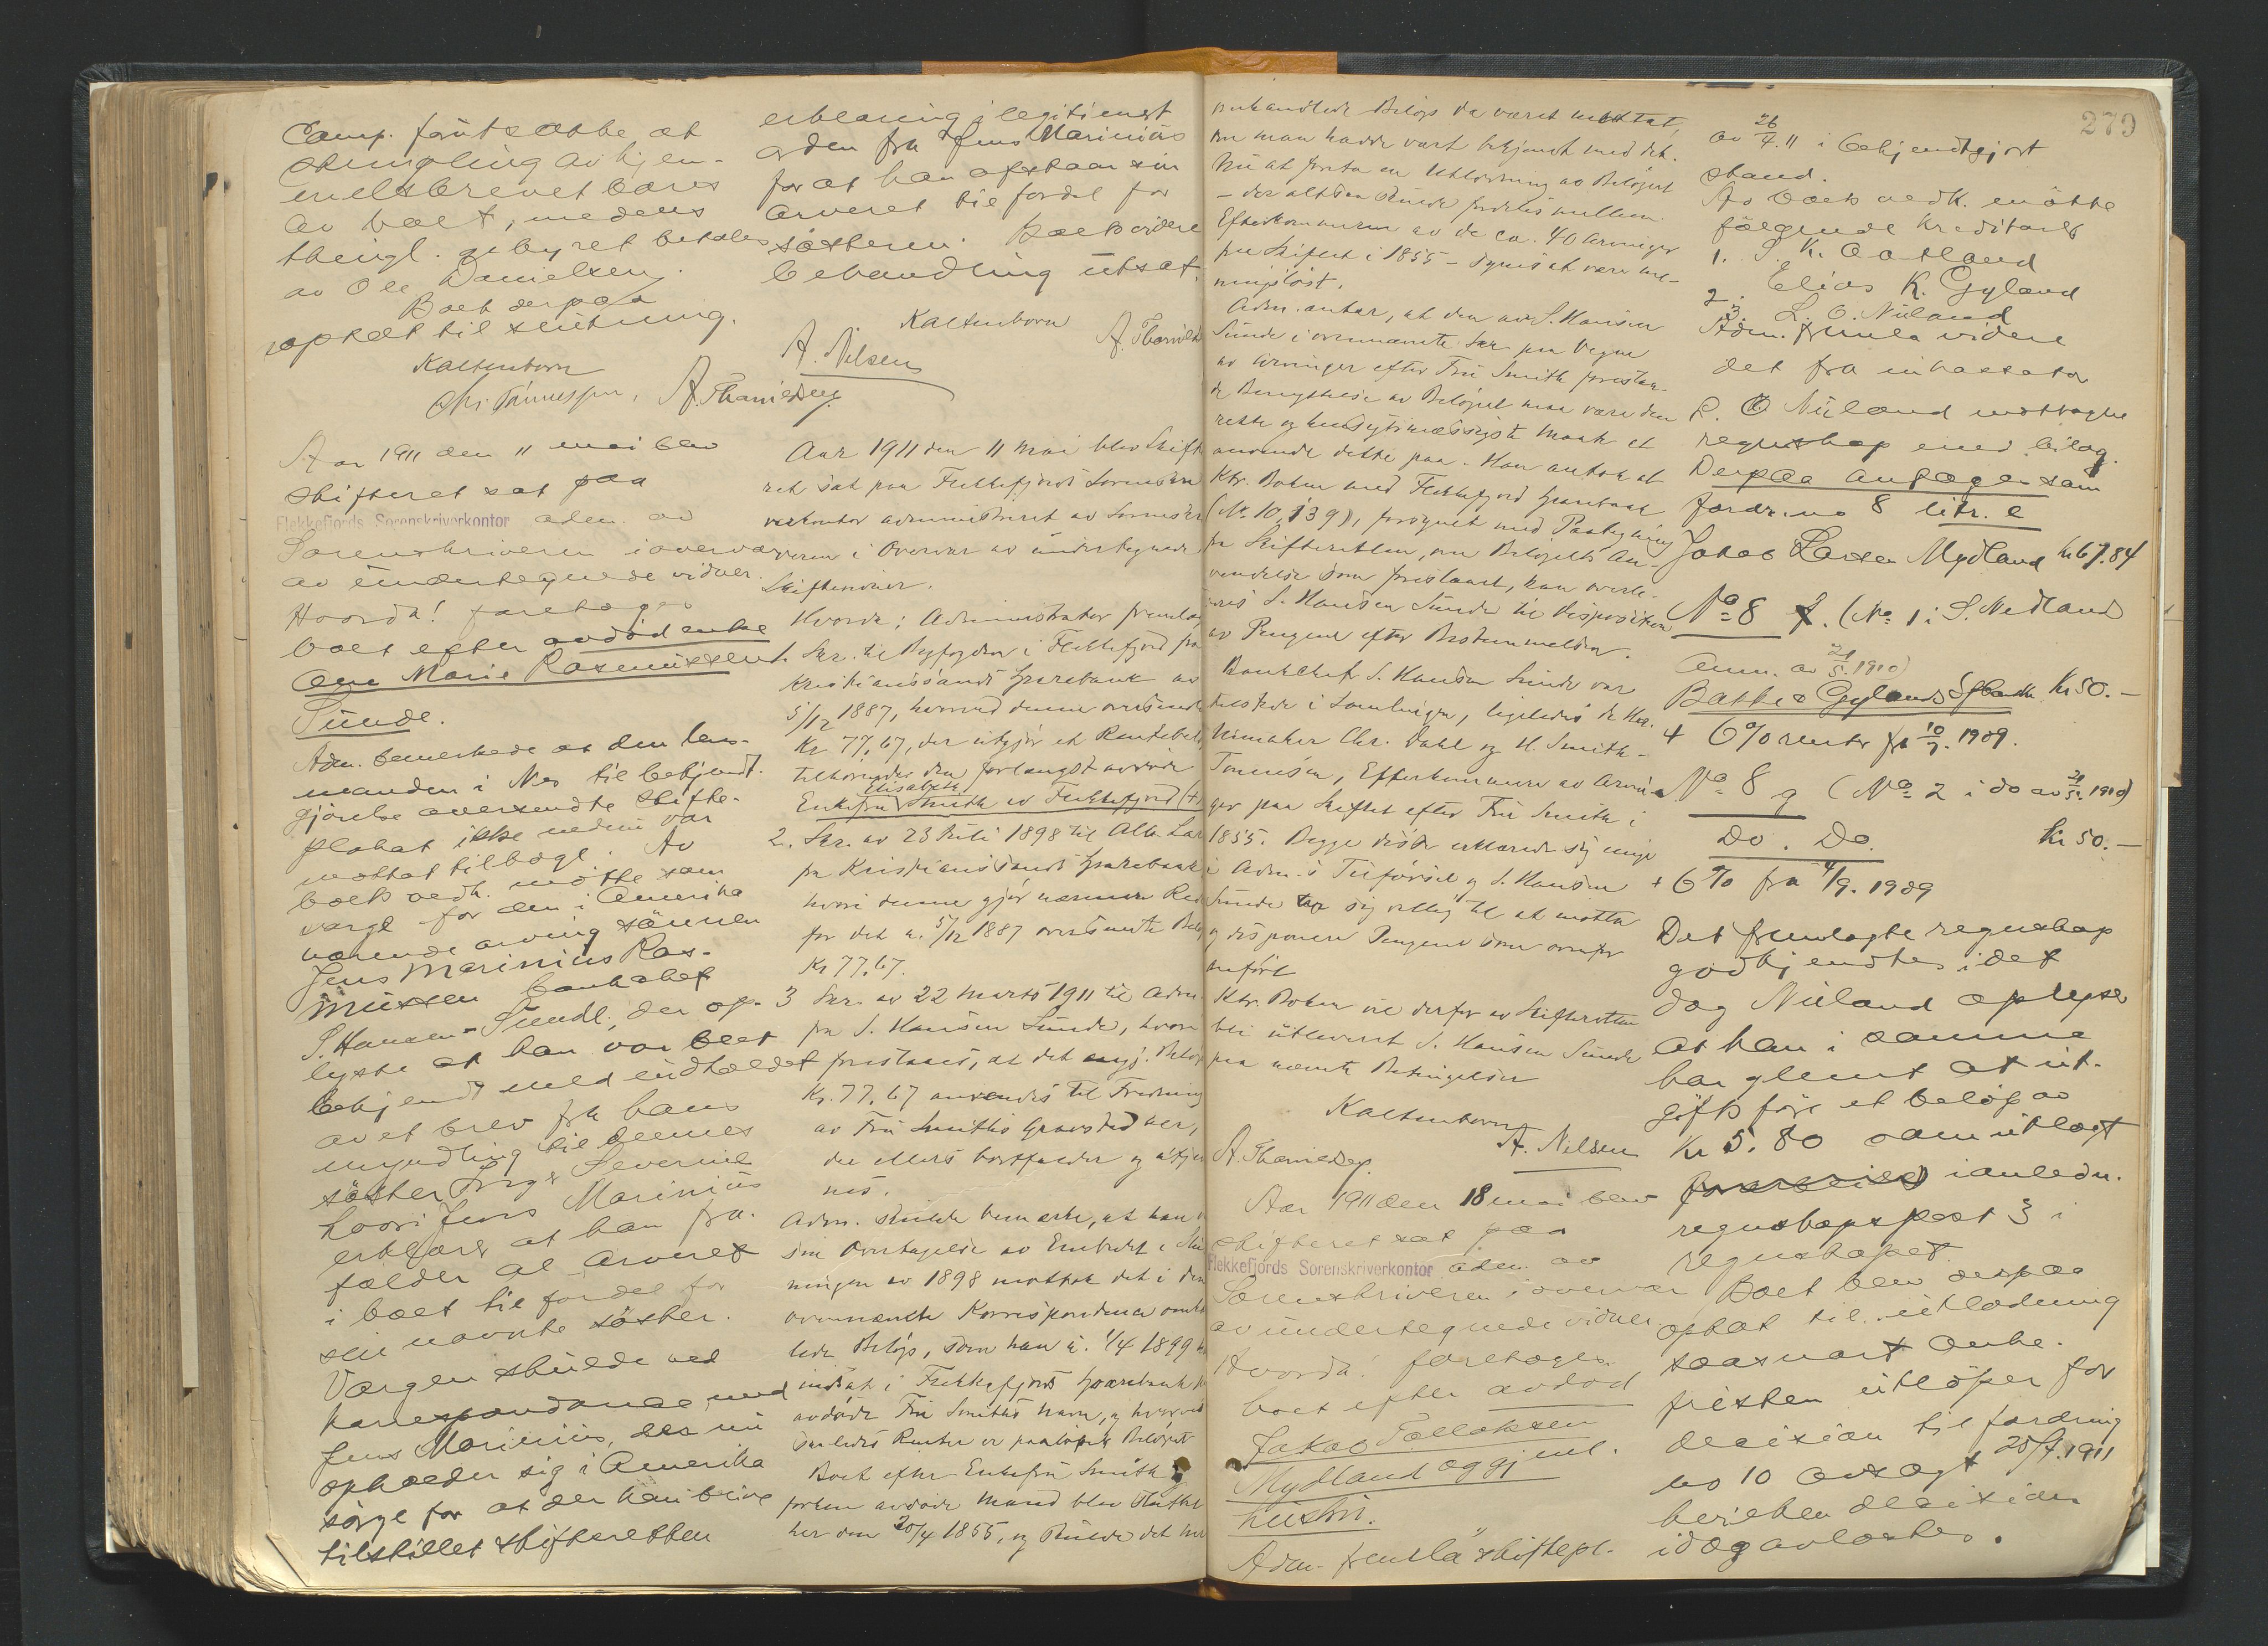 Comp. forutsatte at
stempling av hjem-
melsbrevet bæres
av boet, medens
thingl. gebyret betales
av Ole Danielsen.
Boet derpaa
optat til slutning.
Kaltenborn
Chr. Tønnessen, A. Thanielsen
Aar 1911 den 11 mai blev
skifteret sat paa
Flekkefjords Sorenskriverkontor adm. av
Sorenskriveren i overvær
av undertegnede vidner.
Hvorda! foretoges
boet efter avdød enke
Ane Marie Rasmussen
Sunde.
Adm. bemerkede at den lens-
manden i Nes til bekjendt-
gjørelse oversendte skifte-
plakat ikke endnu var
mottat tilbage. Av
boets vedk. møtte som
verge for den i Amerika
værende arving sønnen
Jens Marinius Ras-
mussen bankchef
S. Hansen-Sunde, der op-
lyste at han var blet
bekjendt med indholdet
av et brev fra hans
myndling til dennes
søster Severine
hvori Jens Marinius
erklærer at han fra-
falder al arveret
i boet til fordel for
sin nævnte søster.
Vergen skulde ved
korrespondance med
Jens Marinius, der nu
opholder sig i Amerika
sørge for at der kan blive
tilstillet skifteretten
erklæring i legitimert
orden fra Jens Marinius
for at han afstaar sin
arveret til fordel for
søsteren. Boets videre
behandling utsat.
Kaltenborn
A. Nilsen A. Thanielsen
Aar 1911 den 11 Mai blev Skifte
ret sat paa Flekkefjords Sorenskri
verkontor administreret av Sorenskri
veren i Overvær av undertegnede
Skiftevidner.
Hvorda: Administrator fremlag
1. Skr. til Byfogden i Flekkefjord fra
Kristianssands Sparebank av
5/12 1887, hvorved denne oversendte
Kr 77,67, der utgjør et Rentebeløp
tilhørende den forlængst avdøde
Enkefru Elisabeth Smith av Flekkefjord
2. Skr. av 23 Juli 1898 til Alb. Lar
fra Kristianssands Sparebank
hvori denne gjør nærmere Rede
for det u. 5/12 1887 oversendte Beløp
Kr 77,67.
3 Skr. av 22 Marts 1911 til Adm.
fra S. Hansen Sunde, hvori
foreslaaes, at det omgj. Beløp
Kr. 77,67 anvendes til Fredning
av Fru Smiths Gravsted her,
der ellers bortfalder og utsjen
nes.
Adm. skulde bemærke, at han
sin Overtagelse av Embedet i Slut
ningen av 1898 mottok det i den
ovennævnte Korrespondance omhand
lede Beløp, som han u. 1/4 1899
indsatte i Flekkefjords Sparebank
avdøde Fru Smiths Navn, og hvorved
saaledes Renter er paaløpet Beløpet
Boet efter Enkefru Smith og
forhen avdøde Mand blev sluttet
her den 20/4 1855, og skulde det her
omhandlede Beløp da været medtat,
om man hadde vært bekjendt med det.
Nu at foreta en Utlodning av Beløpet
– der altsaa skulde fordeles mellem
Efterkommerne av de ca. 40 Arvinger
paa Skiftet i 1855 – synes at være me-
ningsløst.
Adm. antar, at den av S. Hansen
Sunde i ovennævnte Skr. paa Vegne
av Arvinger efter Fru Smith foreslaa-
de Benyttelse av Beløpet maa være den
rette og hensigtsmæssigste Maate at
anvende dette paa. Han antok at
Ktr. Boken med Flekkefjord Sparebank
(No 10,139), forsynet med Paategning
fra Skifteretten, om Beløpets An-
vendelse som foreslaaet, kan overle-
veres S. Hansen Sunde til Disposition
av Pengene efter Bestemmelsen.
Bankchef S. Hansen Sunde var
tilstede i Samlingen, ligeledes de Her.
Urmaker Chr. Dahl og H. Smith-
Tønnesen, Efterkommere av Arvin-
ger paa Skiftet efter Fru Smith i
1855. Begge disse erklærede sig enige
i Adm.s Tilførsel og S. Hansen
Sunde sig villig til at motta
og disponere Pengene som ovenfor
anført
Ktr. Boken vil derfor av Skifteretten
bli utleveret S. Hansen Sunde
paa nævnte Betingelser
Kaltenborn
A. Thanielsen. A. Nilsen
Aar 1911 den 18 mai blev
skifteret sat paa
Flekkefjords Sorenskriverkontor adm. av
Sorenskriveren i overvær
av undertegnede vidner
Hvorda. foretoges
boet efter avdød
Jakob Tollaksen
Mydland og gjenl.
hustru.
Adm. fremla skiftepl.
279
av 26/4. 11 i bekjendtgjort
stand.
Av boets vedk. møtte
følgende kreditorer
1. S. K. Oatland
2. Elias K. Gyland
3. L. O. Nuland
Adm. fremla videre
det fra inkassator
L. O Nuland mottagne
regnskap med bilag.
Derpaa antages som
fordr. no 8 litr. e
Jakob Larsen Mydland kr 67.84
No 8 f. (No 1 i S. Nedland
Anm. av 21/5. 1910)
Bakke & Gylands Spbank Kr 50.–
+ 6% renter fra 10/7. 1909.
No 8 g (No 2 i do av 21/5. 1910)
Do. Do. Kr 50.–
+ 6% fra 4/9. 1909
Det fremlagte regnskap
godkjendtes, idet
dog Nuland oplyser
at han i samme
har glemt at ut-
giftsføre et beløp av
Kr 5.80 som utlagt
i anledn.
regnskapspost 3 i
regnskapet.
Boet blev derpaa
optat til utlodning
saasnart anke-
fristen utløper for
decision til fordring
no 10 avsagt 25/4. 1911
hvilken decision
idag avlæstes.